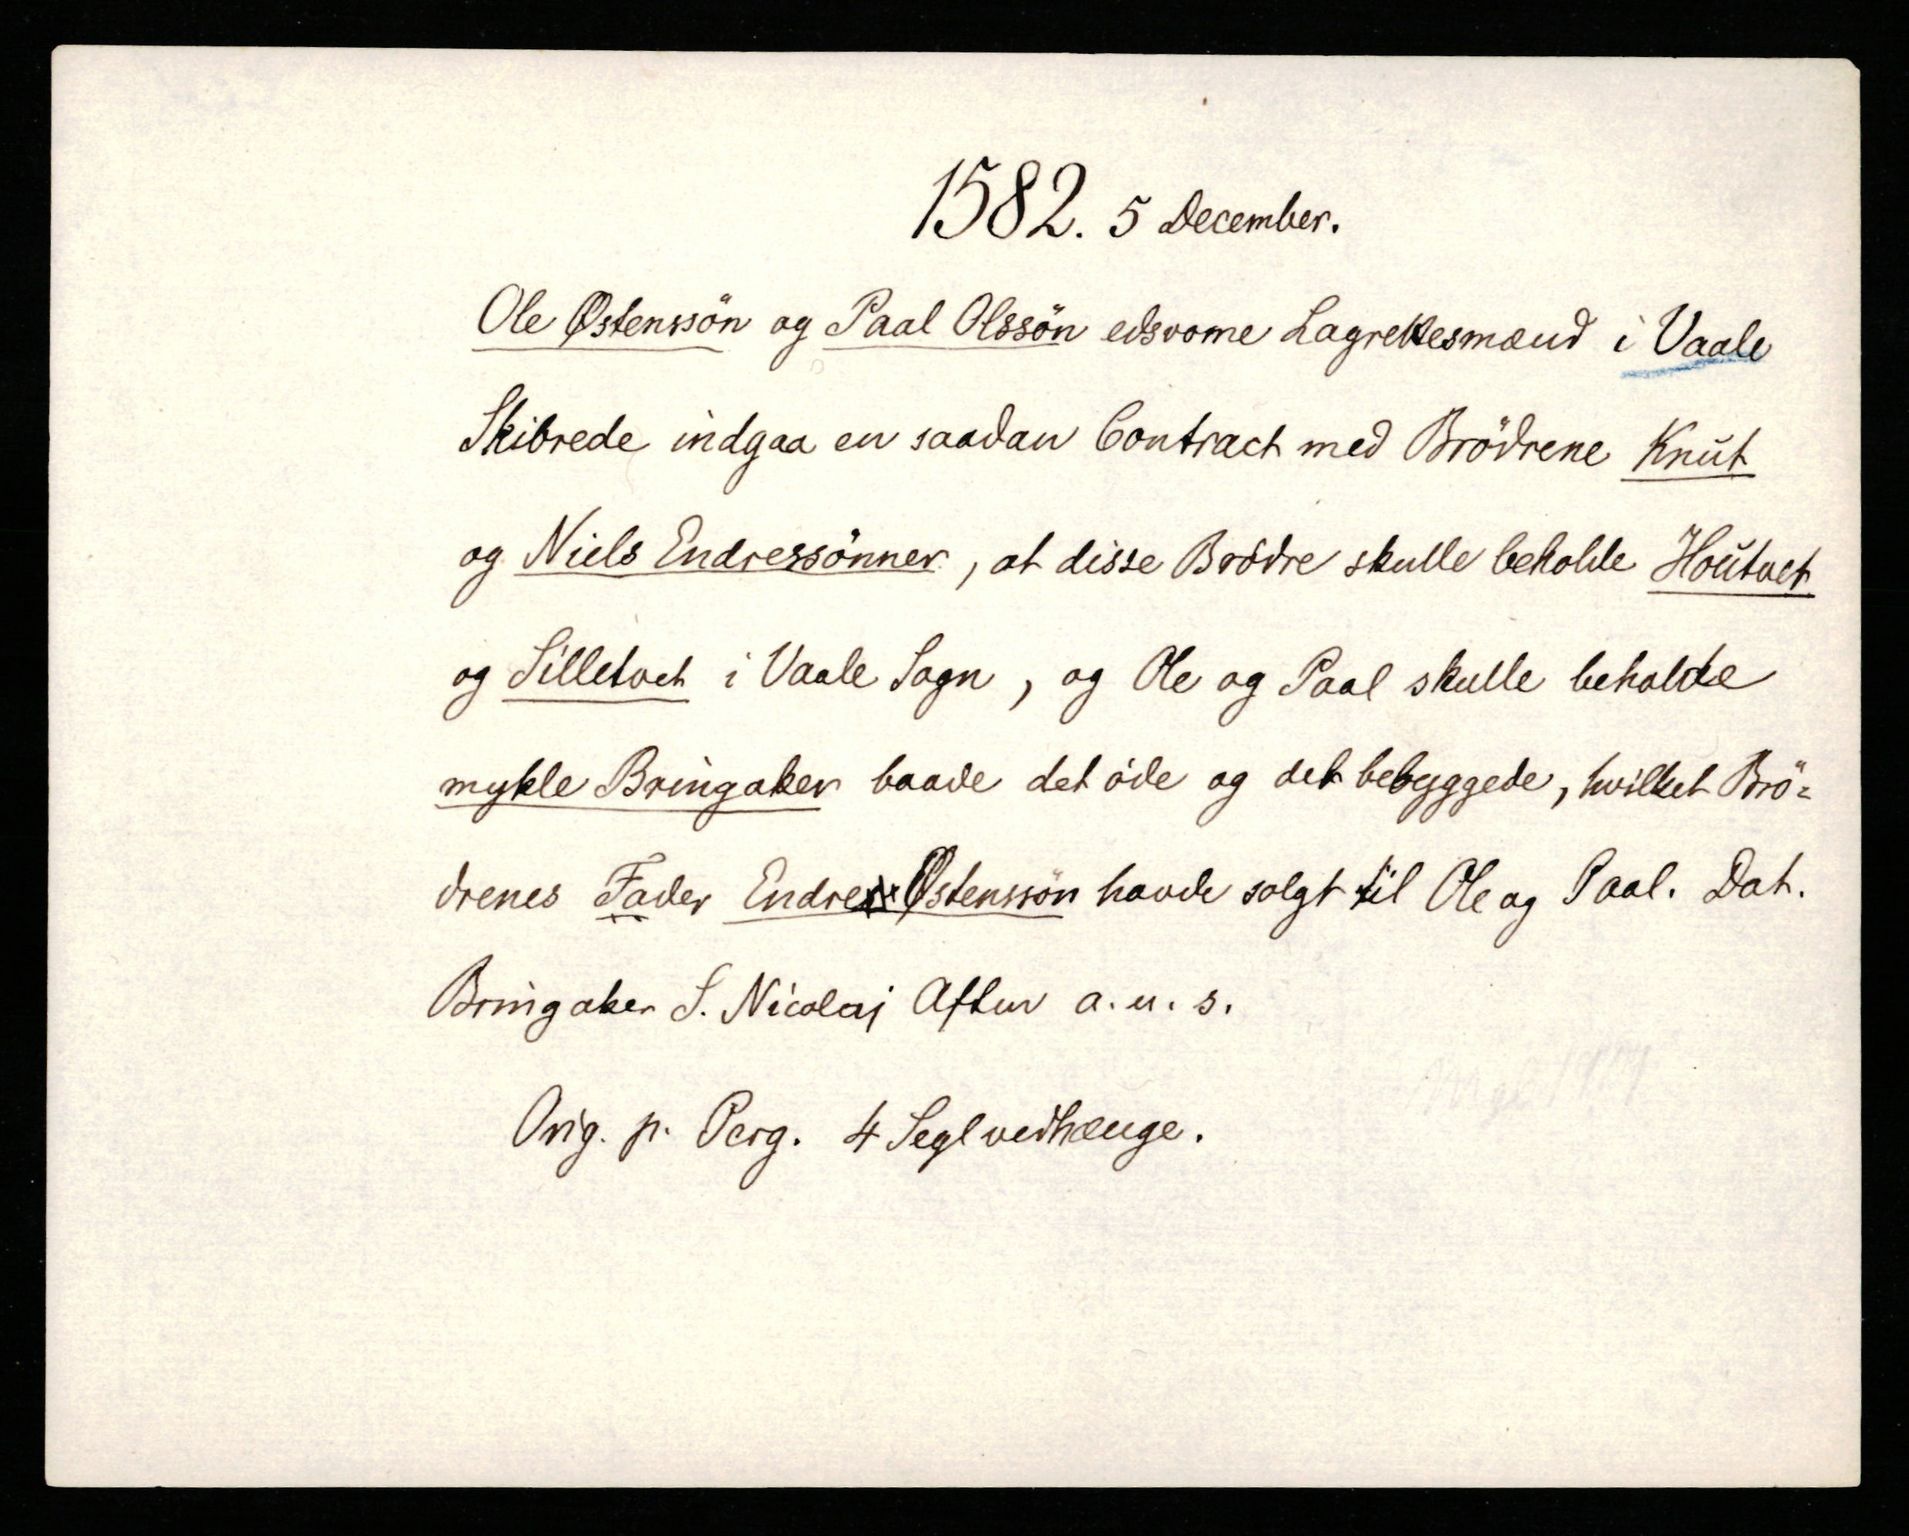 1582. 5 December.
Ole Østenssön og Paal Olssön edsvorne Lagrettesmænd i Vaale
Skibrede indgaa en saadan Contract med Brödrene Knut
og Niels Endressönner, at disse Brödre skulle beholde Houtvet
og Silletvet i Vaale Sogn, og Ole og Paal skulle beholde
mykle Bringaker baade det öde og det bebyggede, hvilket Brö=
drenes Fader Endre Østenssön havde solgt til Ole og Paal. Dat.
Bringaker S. Nicolaj Aften a. u. s.
Orig. p. Perg. 4 Segl vedhænge.